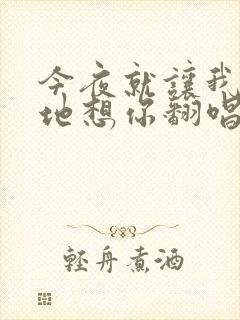 今夜就讓我
地想你翻唱
輕舟煮酒